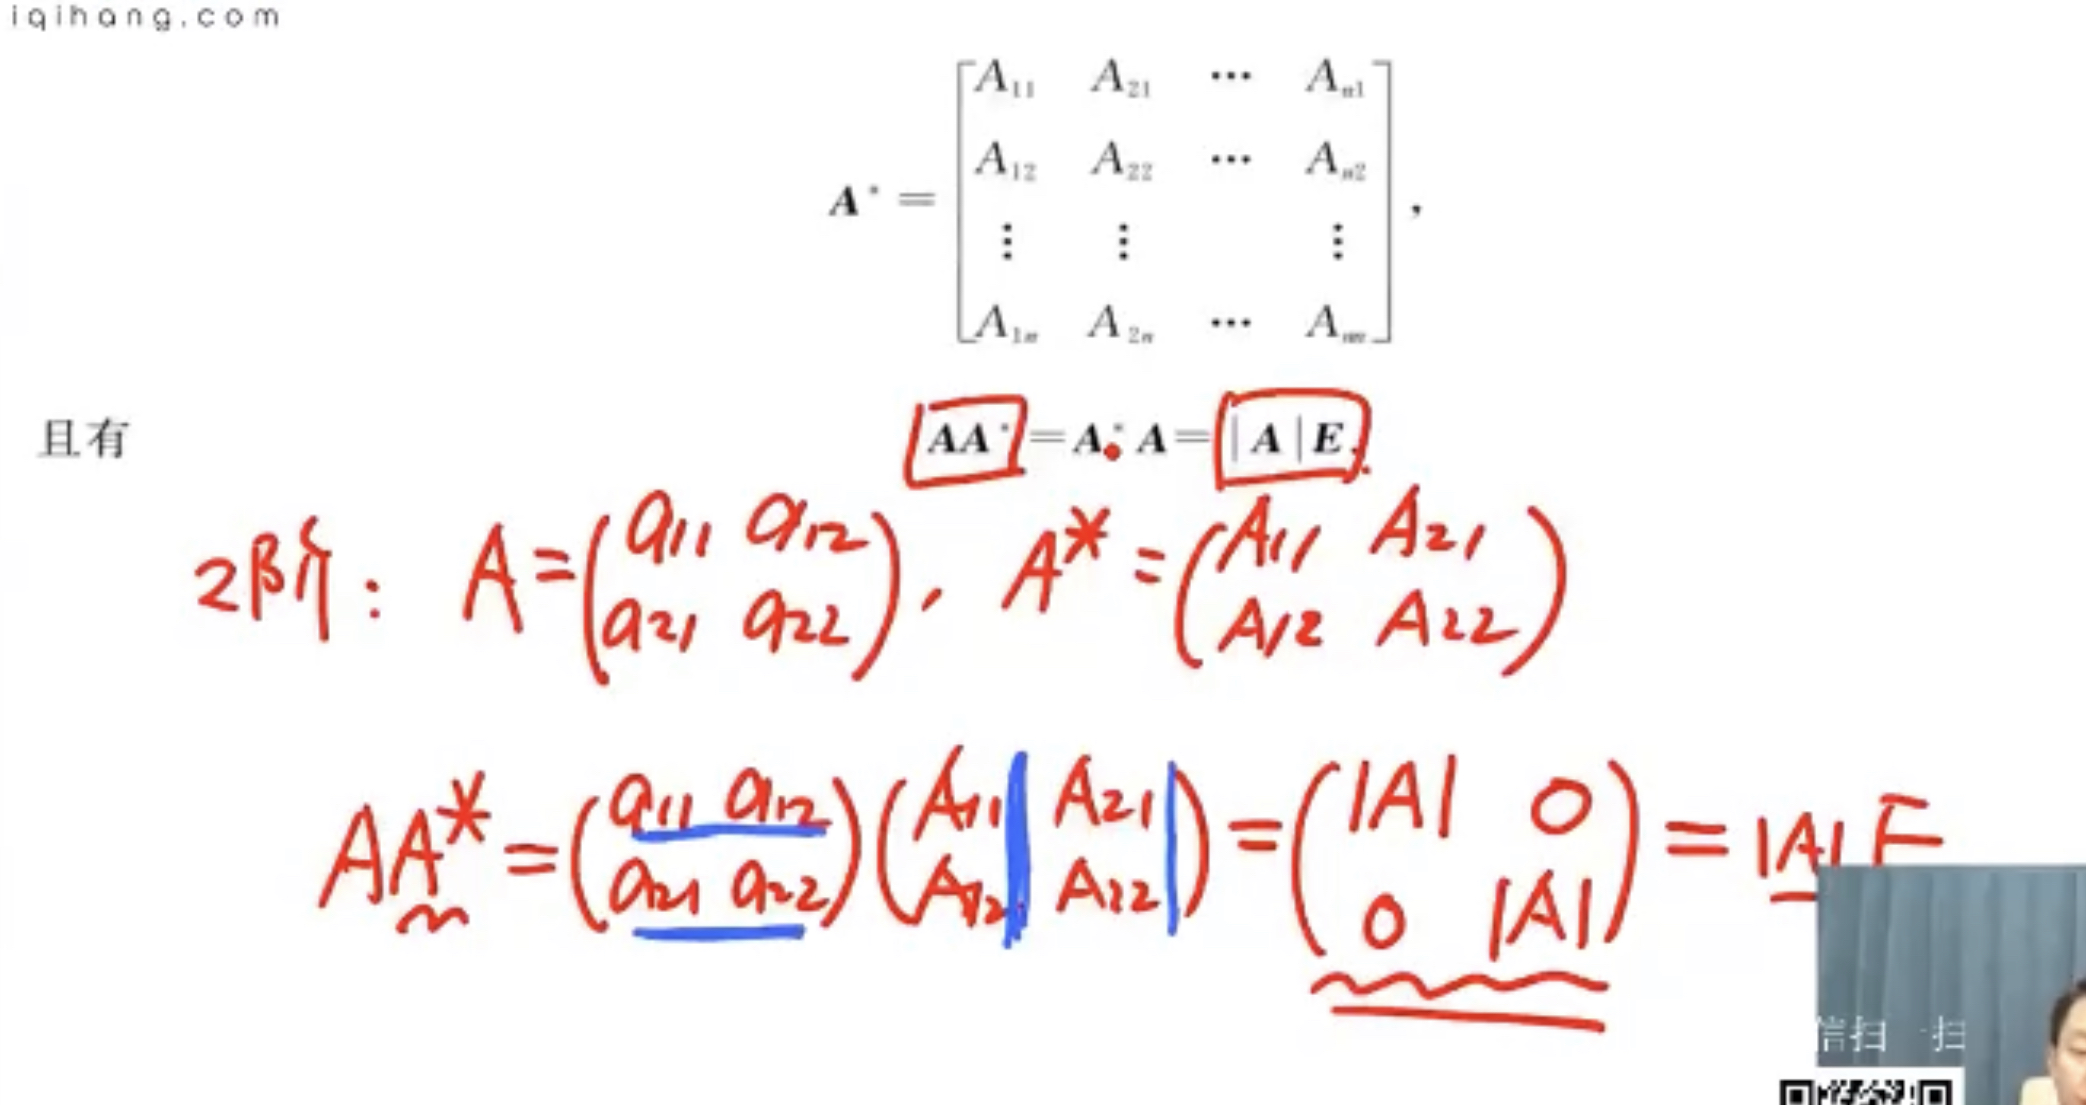 iqihang.com
A* = [A₁₁ A₂₁ ⋯ Aₙ₁
A₁₂ A₂₂ ⋯ Aₙ₂
⋮ ⋮ ⋮
A₁ₙ A₂ₙ ⋯ Aₙₙ],
且有 AA* = A*A = |A|E.
2阶: A = (a₁₁ a₁₂
a₂₁ a₂₂), A* = (A₁₁ A₂₁
A₁₂ A₂₂)
AA* = (a₁₁ a₁₂
a₂₁ a₂₂)(A₁₁ A₂₁
A₁₂ A₂₂) = (|A| 0
0 |A|) = |A|E
信扫一扫